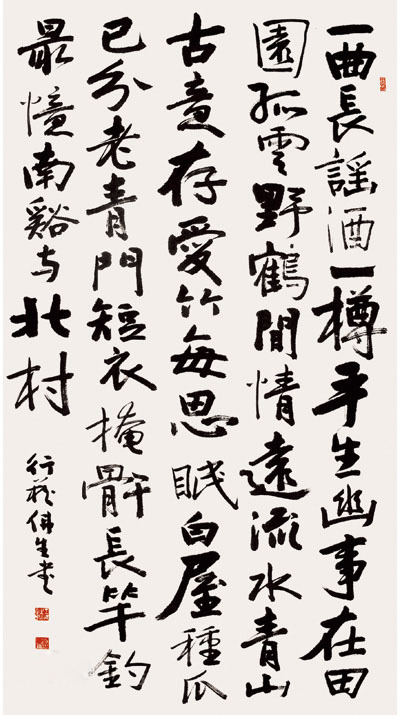 一曲長謠酒一樽平生幽事在田
園孤雲野鶴間情遠流水青山
古意存愛竹每思眠白屋種瓜
已分老青門短衣掩骭長竿釣
最憶南谿与北村